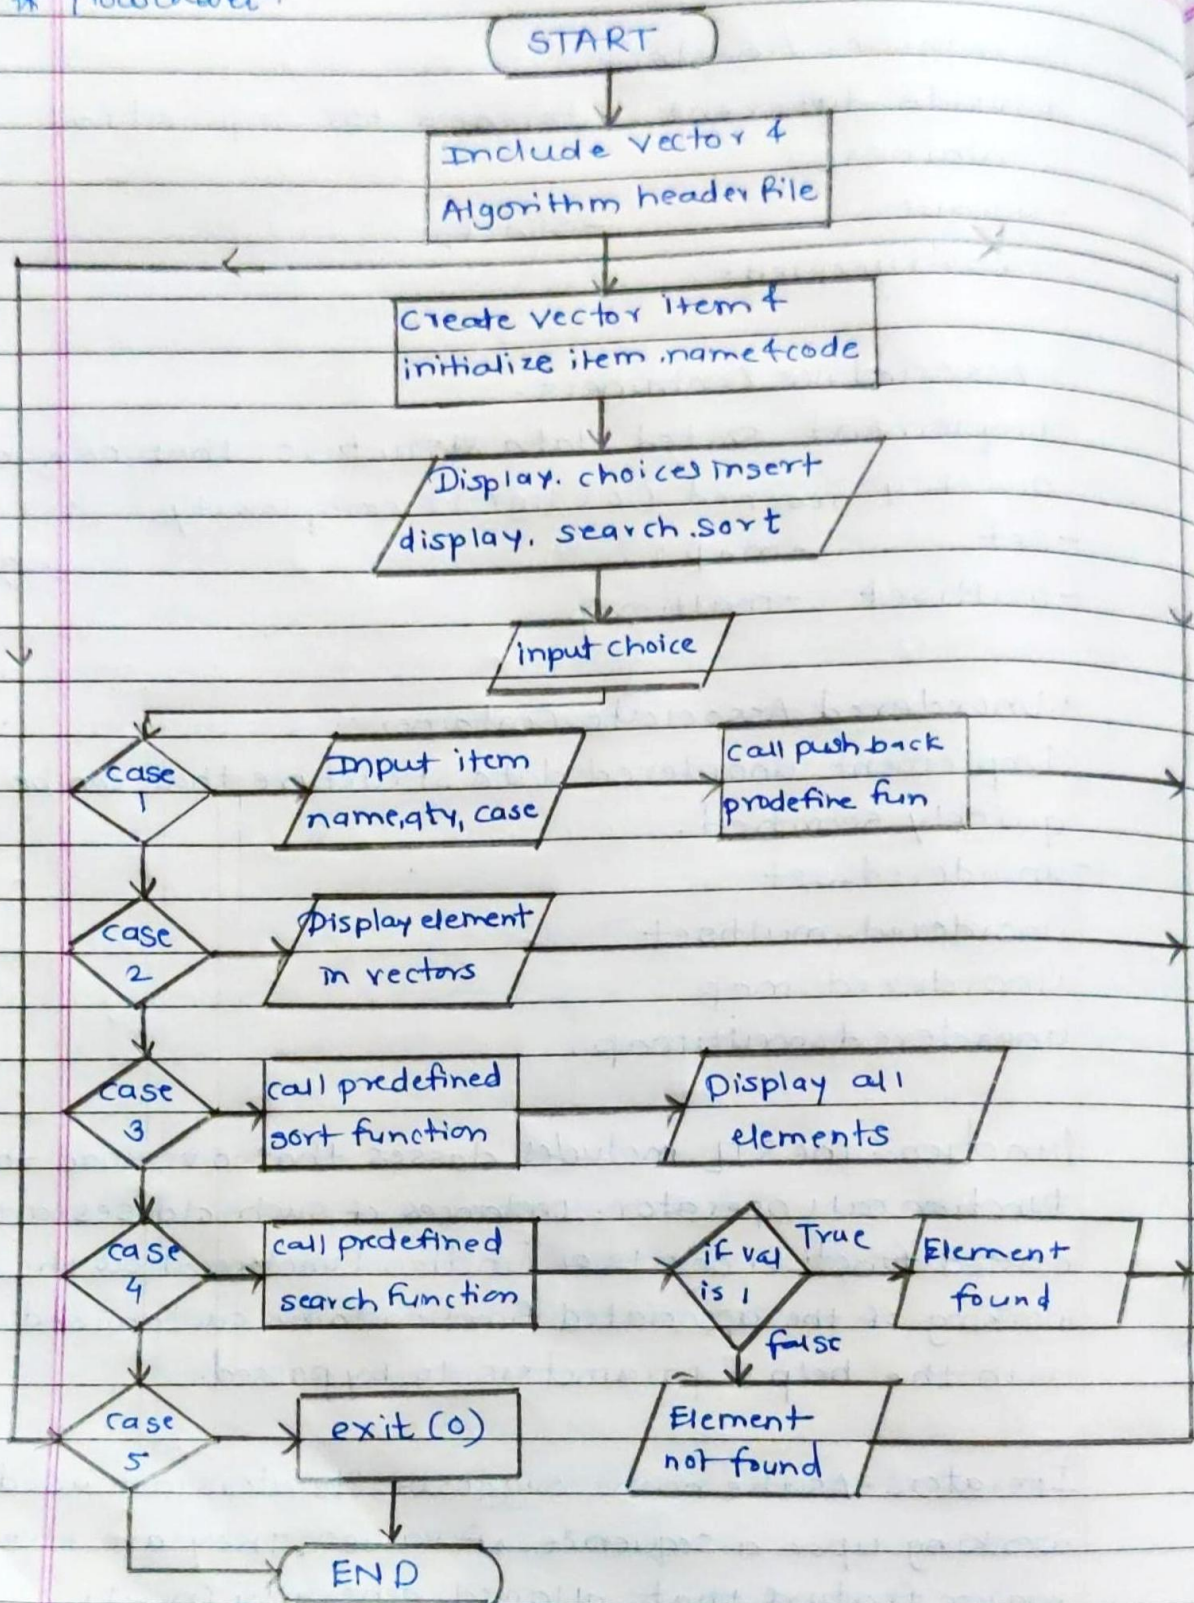 START
Include vector &
Algorithm header file
Create vector item &
initialize item .name & code
Display. choices insert
display. search .sort
input choice
case
1
Input item
name, qty, case
call push back
prodefine fun
case
2
Display element
in vectors
case
3
call predefined
sort function
Display all
elements
case
4
call predefined
search function
if val
is 1
True
Element
found
false
case
5
exit (0)
Element
not found
END